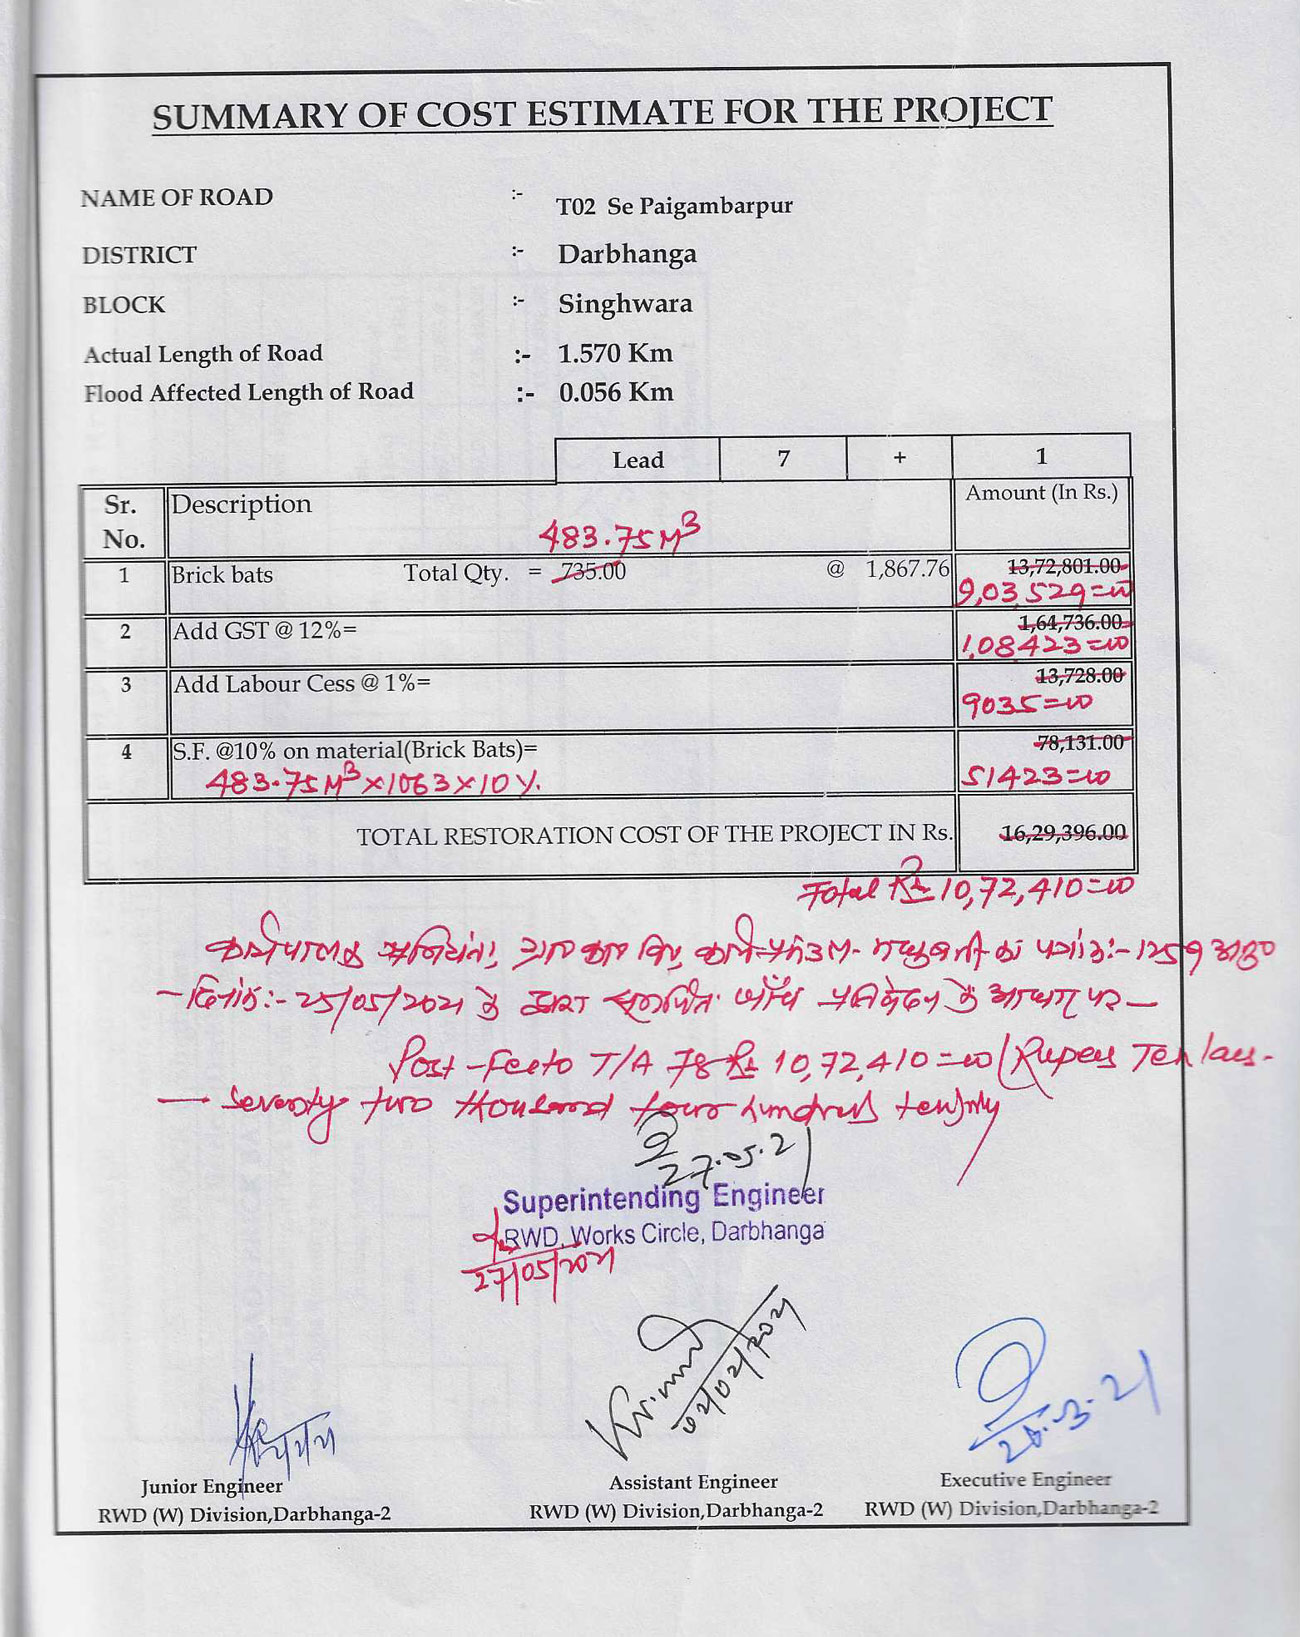 SUMMARY OF COST ESTIMATE FOR THE PROJECT
NAME OF ROAD :- T02 Se Paigambarpur
DISTRICT :- Darbhanga
BLOCK :- Singhwara
Actual Length of Road :- 1.570 Km
Flood Affected Length of Road :- 0.056 Km
Lead 7 + 1
Sr. No. Description Amount (In Rs.)
483.75 M³
1 Brick bats Total Qty. = 735.00 @ 1,867.76 13,72,801.00
9,03,529=00
2 Add GST @ 12%= 1,64,736.00
1,08,423=00
3 Add Labour Cess @ 1%= 13,728.00
9035=00
4 S.F. @10% on material(Brick Bats)= 78,131.00
483.75 M³ x 1063 x 10 %. 51423=00
TOTAL RESTORATION COST OF THE PROJECT IN Rs. 16,29,396.00
Total Rs 10,72,410=00
कार्यपालक अभियंता, कार्य प्रमंडल- मधुबनी का पत्रांक:- 1259 अनु०
- दिनांक:- 25/05/2021 के द्वारा समर्पित जाँच प्रतिवेदन के आधार पर -
Post-Fecto T/A 78 Rs 10,72,410=00 (Rupees Ten lacs-
- Seventy two thousand four hundred ten) only
27.05.21
Superintending Engineer
RWD, Works Circle, Darbhanga
27/05/2021
26.3.21
Junior Engineer Assistant Engineer Executive Engineer
RWD (W) Division,Darbhanga-2 RWD (W) Division,Darbhanga-2 RWD (W) Division,Darbhanga-2